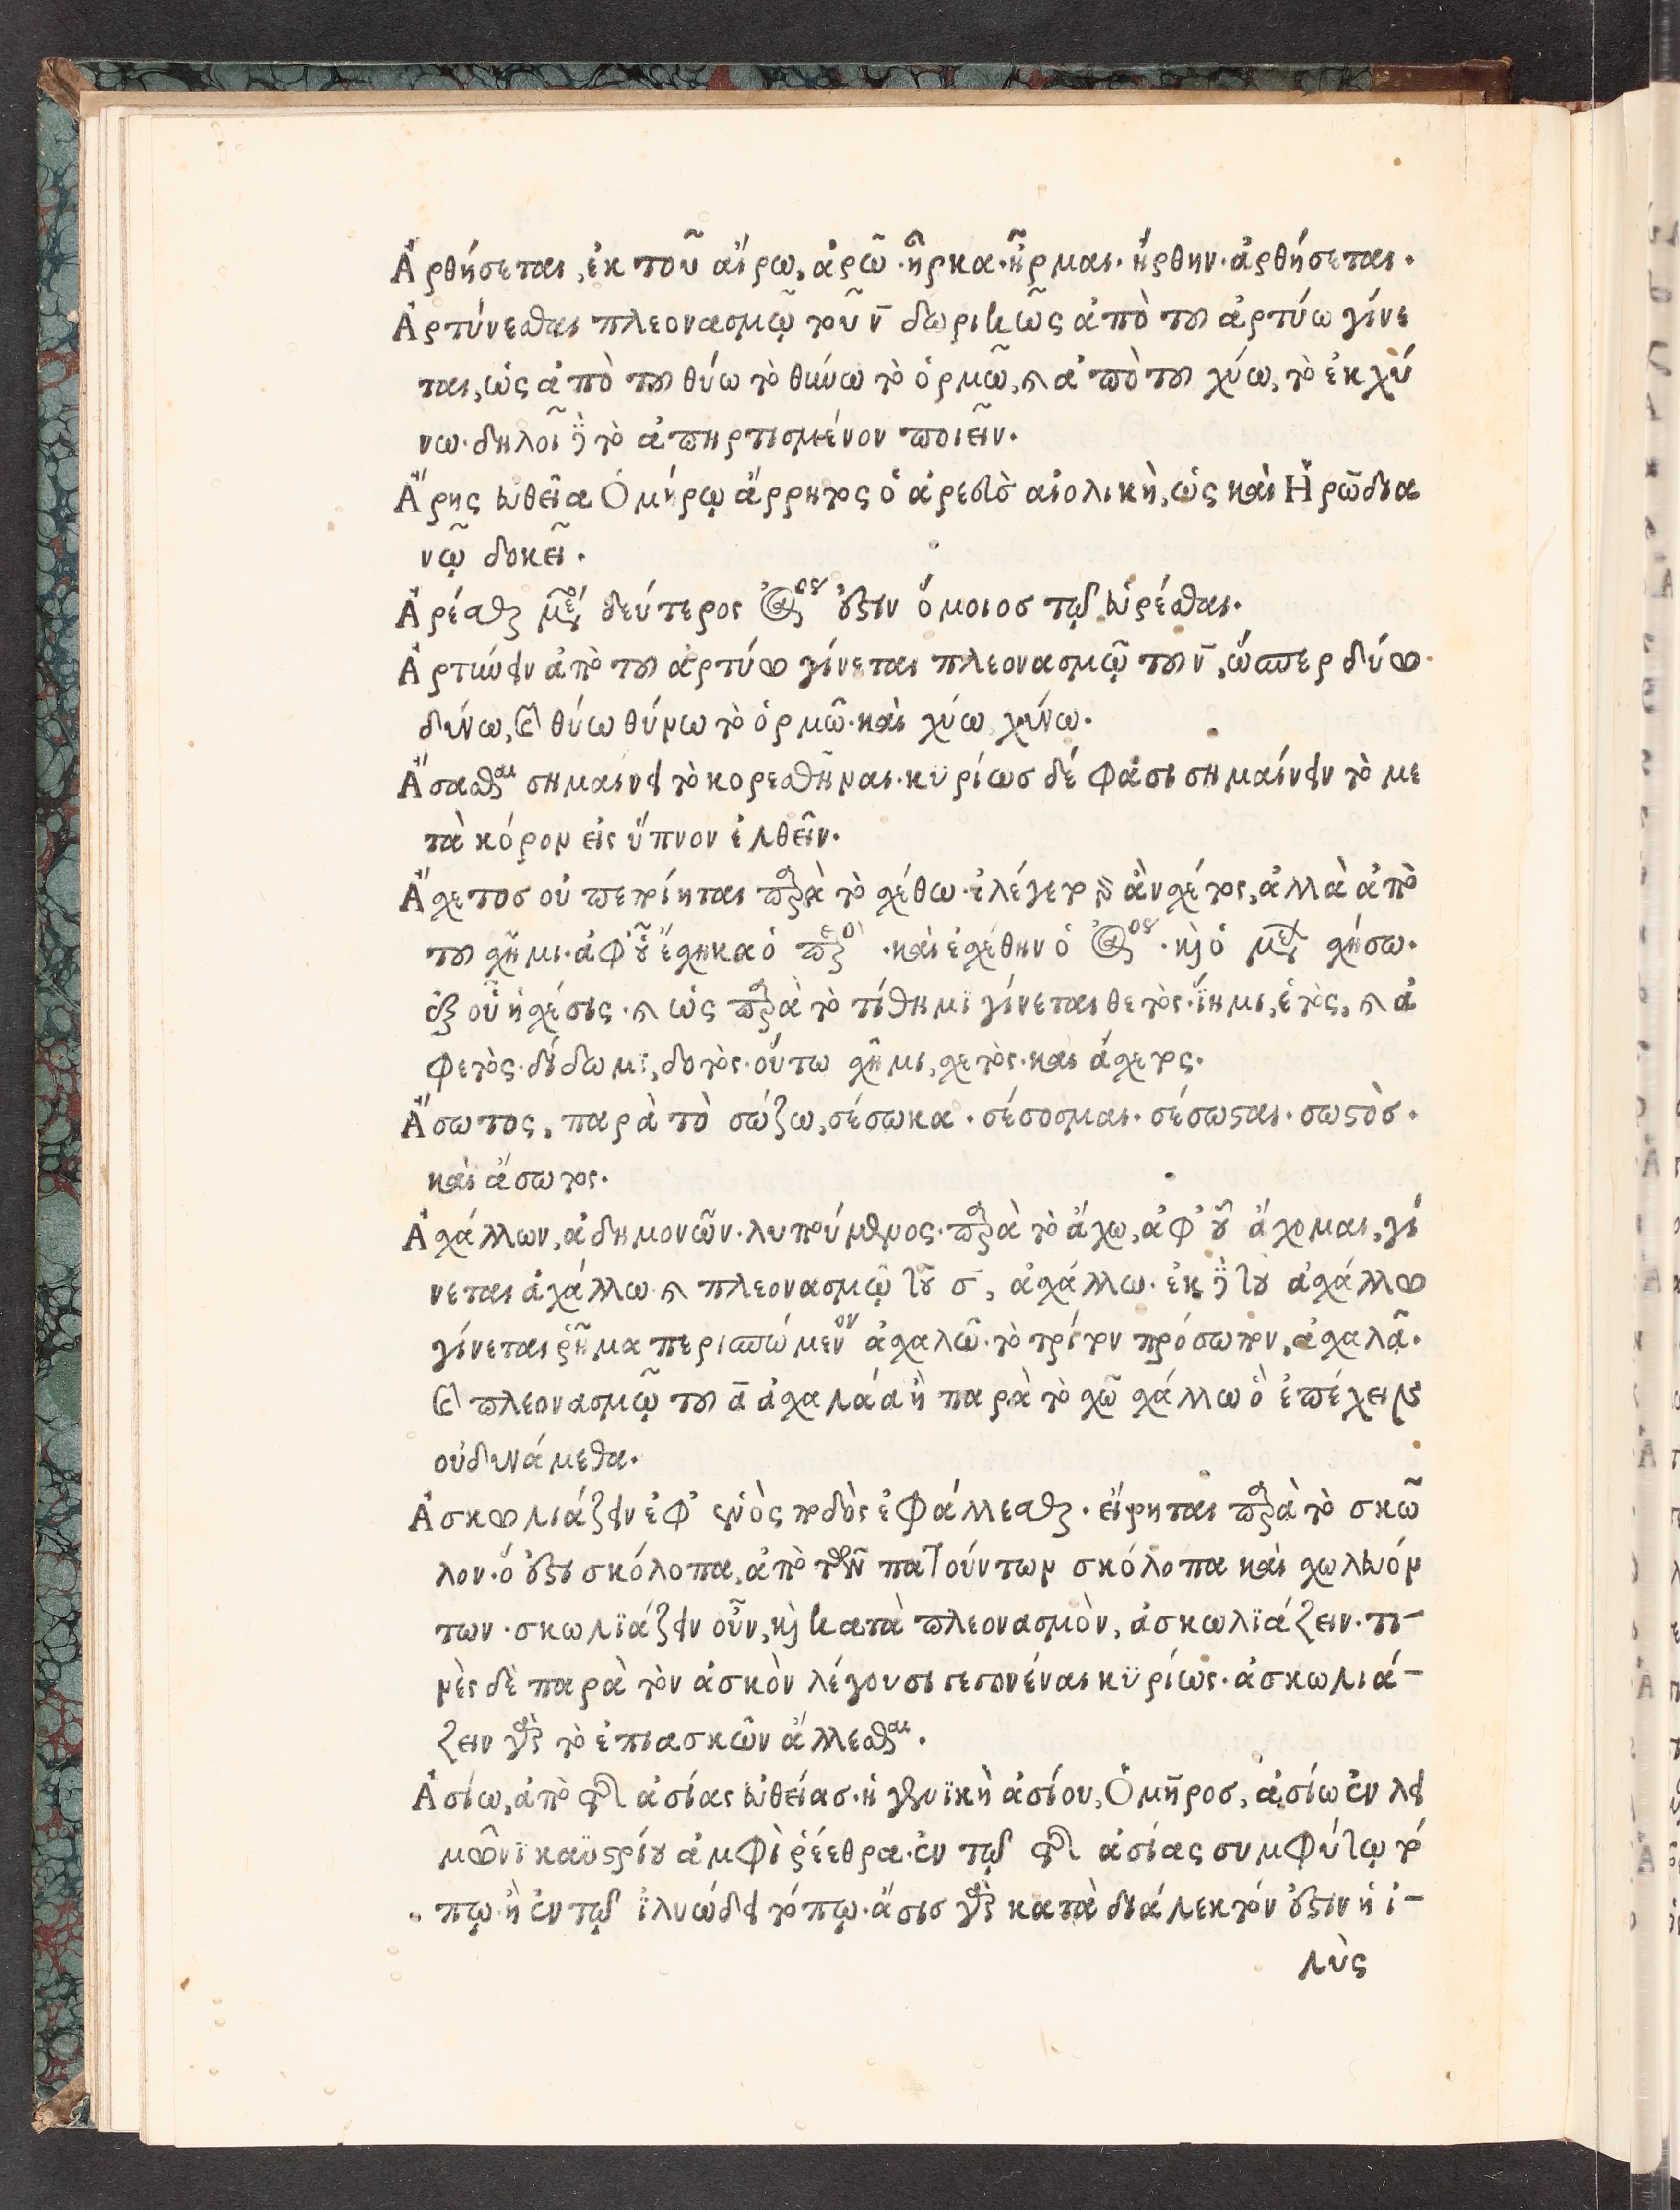 Ἀρθήσεται, ἐκ τοῦ αἴρω, ἀρῶ· ἦρκα· ἦρμαι· ἤρθην· ἀρθήσεται.
Ἀρτύνεσθαι πλεονασμῷ τοῦ ν̄ δωρικῶς ἀπὸ του ἀρτύω γίνε
ται, ὡς ἀπὸ του θύω τὸ θύνω τὸ ὁρμῶ, καὶ ἀπὸ του χύω, τὸ ἐκχύ
νω· δηλοῖ δὲ τὸ ἀπηρτισμένον ποιεῖν.
Ἄρης εὐθεῖα Ὁμήρῳ ἄρρητος ὁ ἀρευσ αἰολικὴ, ὡς καὶ Ἡρῶδια
νῷ δοκεῖ.
Ἀρέσθαι δεύτερος ἐστιν ὅμοιοσ τῷ εὑρέσθαι.
Ἀρτύνειν ἀπὸ του ἀρτύω γίνεται πλεονασμῷ του ν̄, ὥσπερ δύω
δύνω, καὶ θύω θύνω τὸ ὁρμῶ· καὶ χύω χύνω.
Ἄσασθαι σημαίνει τὸ κορεσθῆναι· κϋρίωσ δέ φασι σημαίνειν τὸ με
τὰ κόρον εἰς ὕπνον ἐλθεῖν.
Ἄσχετοσ οὐ πεποίηται παρὰ τὸ σχέθω· ἐλέγετο γὰρ ἂν σχέτος, ἀλλὰ ἀπὸ
του σχῆμι· ἀφ' οὗ ἔσχηκα ὁ · καὶ ἐσχέθην ὁ · καὶ ὁ σχήσω.
ἐξ οὗ ἡ σχέσις· καὶ ὡς παρὰ τὸ τίθημϊ γίνεται θετὸς· ἵημι, ἑτὸς, καὶ ἀ
φετὸς· δίδωμϊ, δοτὸς· οὕτω σχῆμι, σχετὸς· καὶ ἄσχετος.
Ἄσωτος, παρὰ τὸ σώζω, σέσωκα· σέσοσμαι· σέσωσται· σωστὸσ.
καὶ ἄσωτος.
Ἀσχάλλων, ἀδημονῶν· λυπούμενος· παρὰ τὸ ἄχω, ἀφ' οὗ ἄχομαι, γί
νεται ἀχάλλω καὶ πλεονασμῷ τοῦ σ̄, ἀσχάλλω· ἐκ δὲ του ἀσχάλλω
γίνεται ῥῆμα περισπώμενον ἀσχαλῶ· τὸ τρίτον πρόσωπον, ἀσχαλᾷ.
καὶ πλεονασμῷ του ᾱ ἀσχαλάα ἢ παρὰ τὸ σχῶ σχάλλω ὃ ἐπέχειν
οὐ δυνάμεθα.
Ἀσκωλιάζειν ἐφ' ἑνὸς ποδὸς ἐφάλλεσθαι· εἴρηται παρὰ τὸ σκῶ
λον· ὅ ἐστι σκόλοπα, ἀπὸ τῶν πατούντων σκόλοπα καὶ χωλευόν
των· σκωλϊάζειν οὖν, καὶ κατὰ πλεονασμὸν, ἀσκωλϊάζειν· τι-
νὲς δὲ παρὰ τὸν ἀσκὸν λέγουσι γεγονέναι κϋρίως· ἀσκωλιά-
ζειν γὰρ τὸ ἐπιασκῶν ἅλλεσθαι.
Ἀσίω, ἀπὸ τῆς ἀσίας εὐθείασ· ἡ γενϊκὴ ἀσίου, Ὁμῆροσ, ἀσίω ἐν λει
μῶνϊ καϋστρίου ἀμφὶ ῥέεθρα· ἐν τῷ τῆς ἀσίας συμφύτῳ τό
πῳ· ἢ ἐν τῷ ἰλυώδει τόπῳ· ἄσισ γὰρ κατὰ διάλεκτόν ἐστιν ἡ ἰ-
λὺς